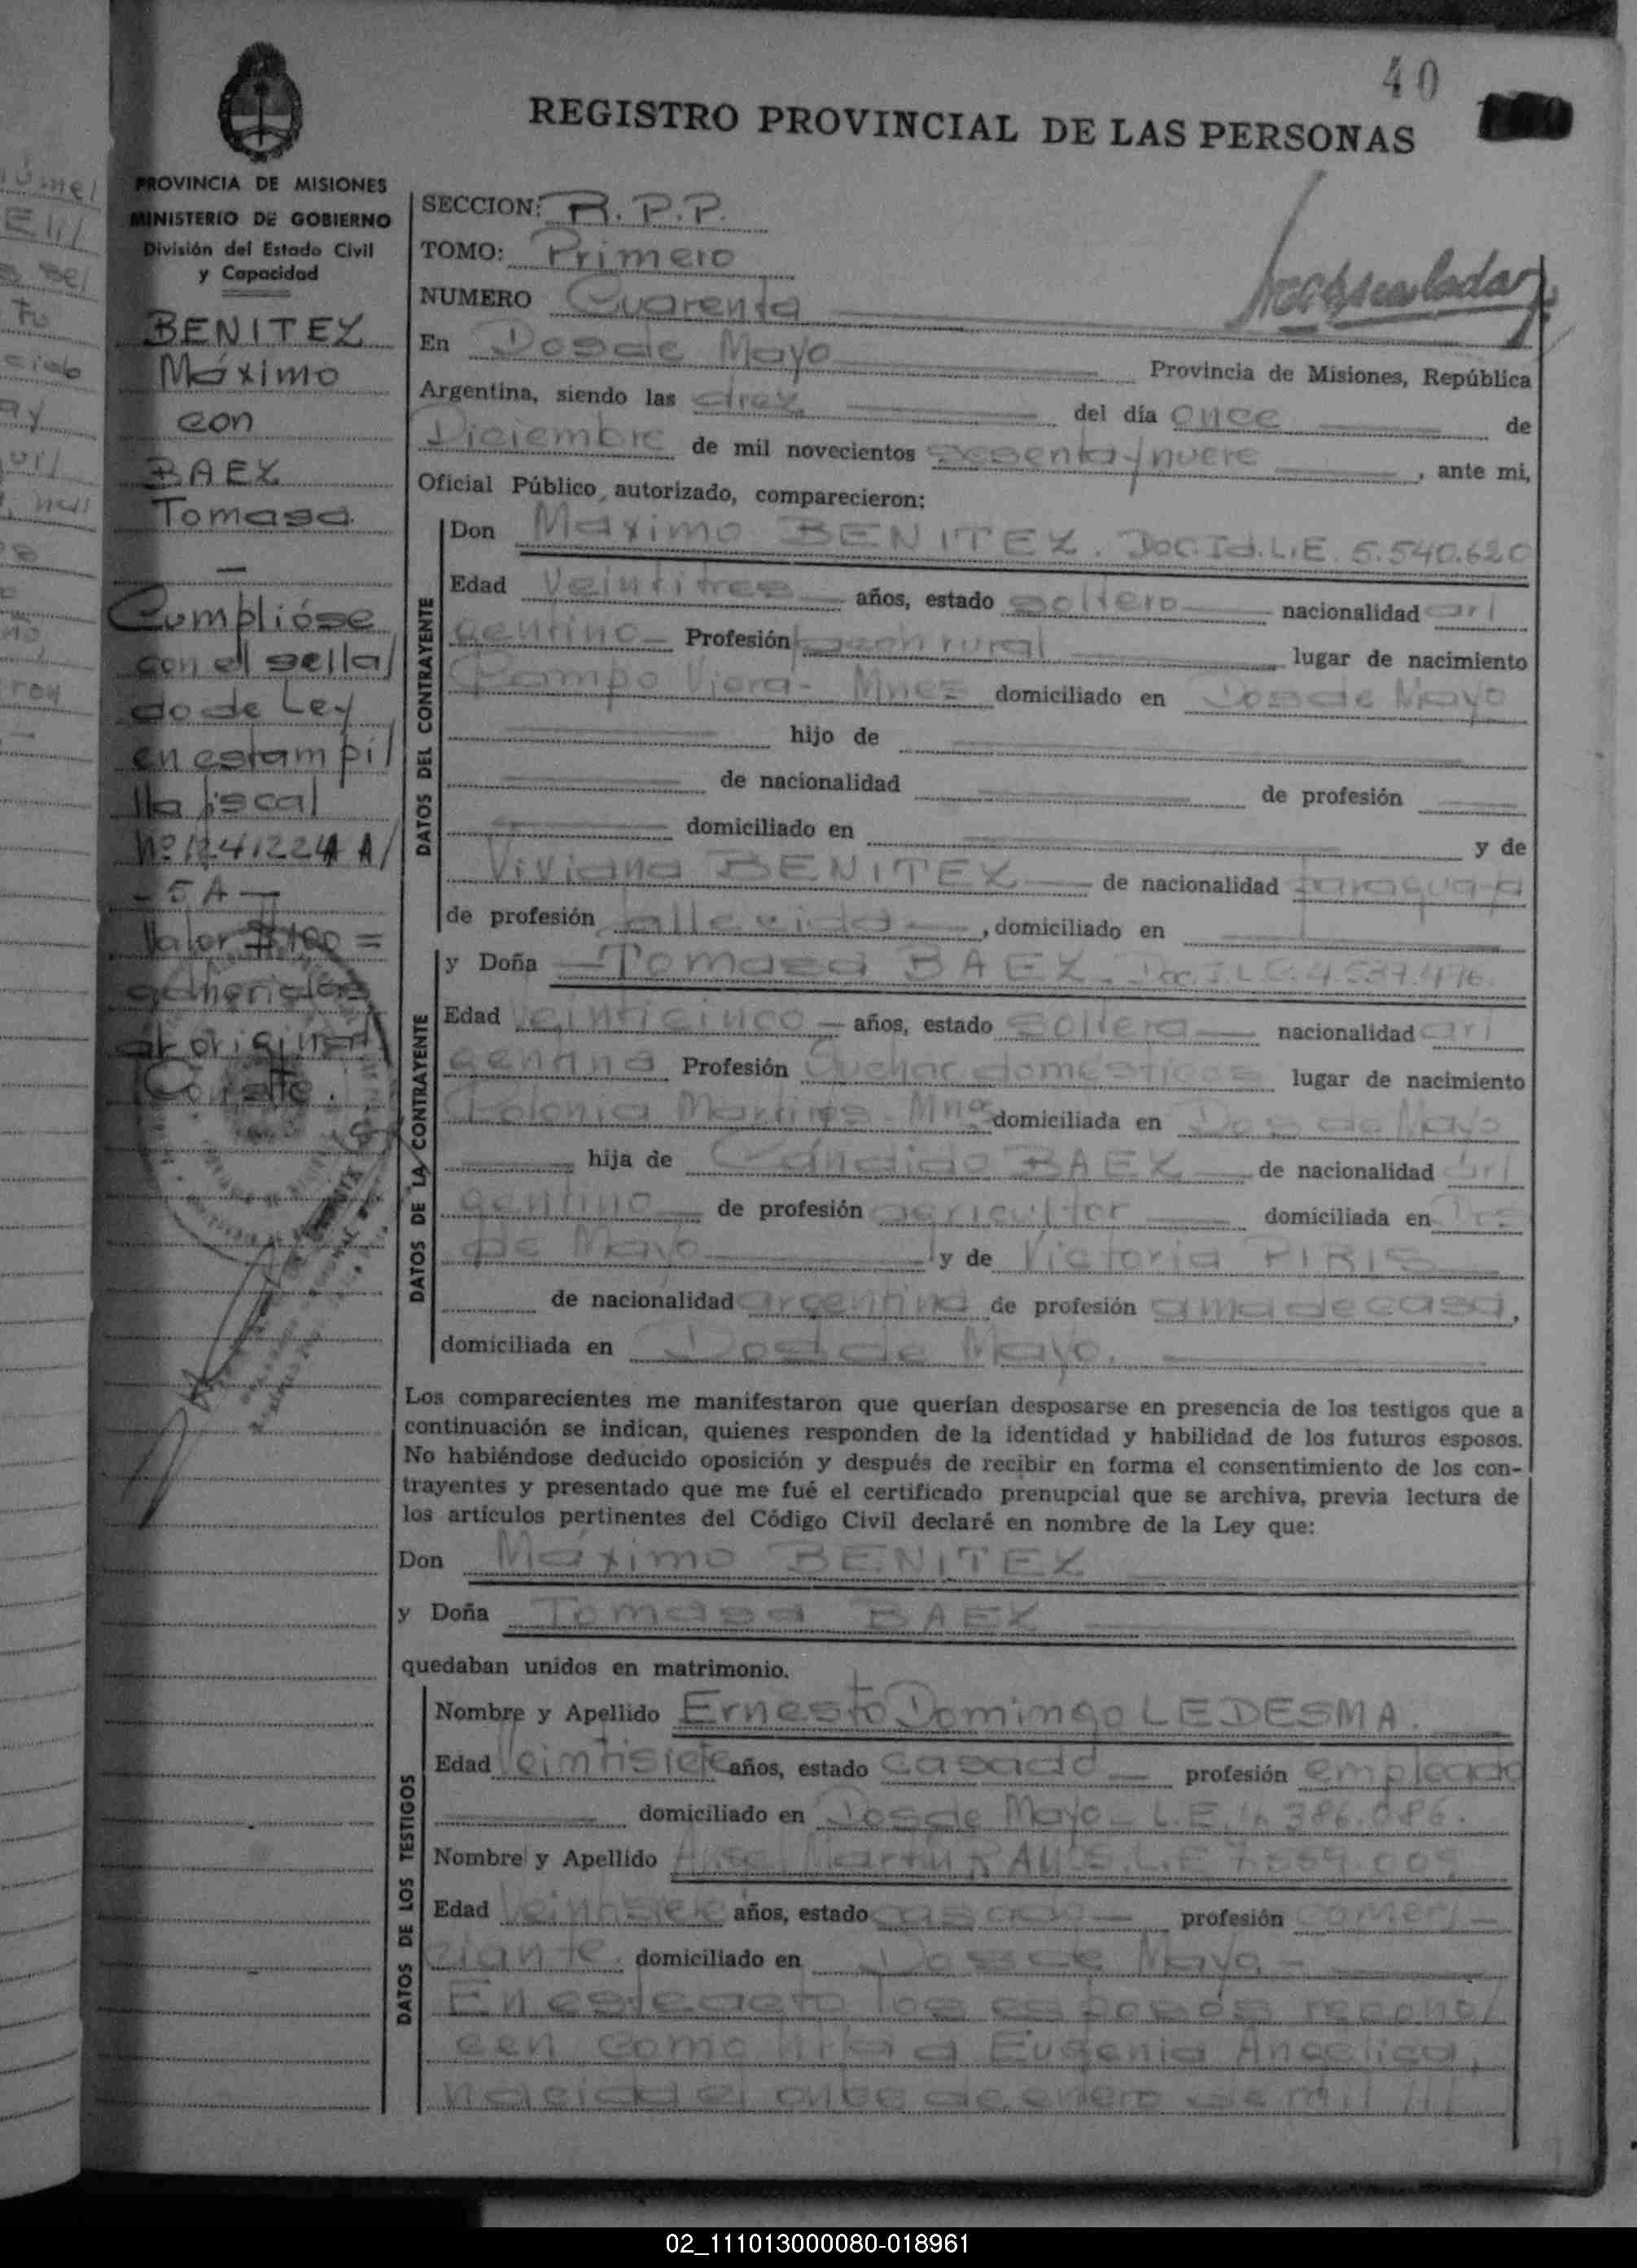 40
REGISTRO PROVINCIAL DE LAS PERSONAS
PROVINCIA DE MISIONES
MINISTERIO DE GOBIERNO
División del Estado Civil
y Capacidad
BENITEZ
Máximo
con
BAEZ
Tomasa
Cumplióse
con el sella/
do de Ley
en estampi/
lla fiscal
5A
Valor $ 100 =
adherida
al original
Conste.
SECCION: R.P.P.
TOMO: Primero
NUMERO Cuarenta
En Dos de Mayo Provincia de Misiones, República
Argentina, siendo las diez del día once de
Diciembre de mil novecientos sesenta y nueve, ante mi,
Oficial Público, autorizado, comparecieron:
DATOS DEL CONTRAYENTE
Don Maximo BENITEZ. Doc.Id.L.E. 5.540.620
Edad Veintitres años, estado soltero nacionalidad ar/
gentino Profesión peon rural lugar de nacimiento
Campo Viera - Mnes domiciliado en Dos de Mayo
hijo de
de nacionalidad de profesión
domiciliado en y de
Viviana BENITEZ de nacionalidad paraguaya
de profesión fallecida, domiciliado en
DATOS DE LA CONTRAYENTE
y Doña Tomasa BAEZ.
Edad Veinticinco años, estado soltera nacionalidad ar/
gentina Profesión Quehac domesticos lugar de nacimiento
Colonia Martires - Mnes domiciliada en Dos de Mayo
hija de Cándido BAEZ de nacionalidad ar/
gentino de profesión agricultor domiciliada en Dos
de Mayo y de Victoria PIRIS
de nacionalidad argentina de profesión ama de casa,
domiciliada en Dos de Mayo.
Los comparecientes me manifestaron que querían desposarse en presencia de los testigos que a
continuación se indican, quienes responden de la identidad y habilidad de los futuros esposos.
No habiéndose deducido oposición y después de recibir en forma el consentimiento de los con-
trayentes y presentado que me fué el certificado prenupcial que se archiva, previa lectura de
los artículos pertinentes del Código Civil declaré en nombre de la Ley que:
Don Máximo BENITEZ
y Doña Tomasa BAEZ
quedaban unidos en matrimonio.
DATOS DE LOS TESTIGOS
Nombre y Apellido Ernesto Domingo LEDESMA.
Edad Veintisiete años, estado casado profesión empleado
domiciliado en Dos de Mayo - L.E.
Nombre y Apellido Martin
Edad Veintisiete años, estado casado profesión comer/
ciante. domiciliado en Dos de Mayo -
En este acto los esposos recono/
cen como hija a Eugenia Angelica,
nacida el once de enero de mil ///
02_111013000080-018961